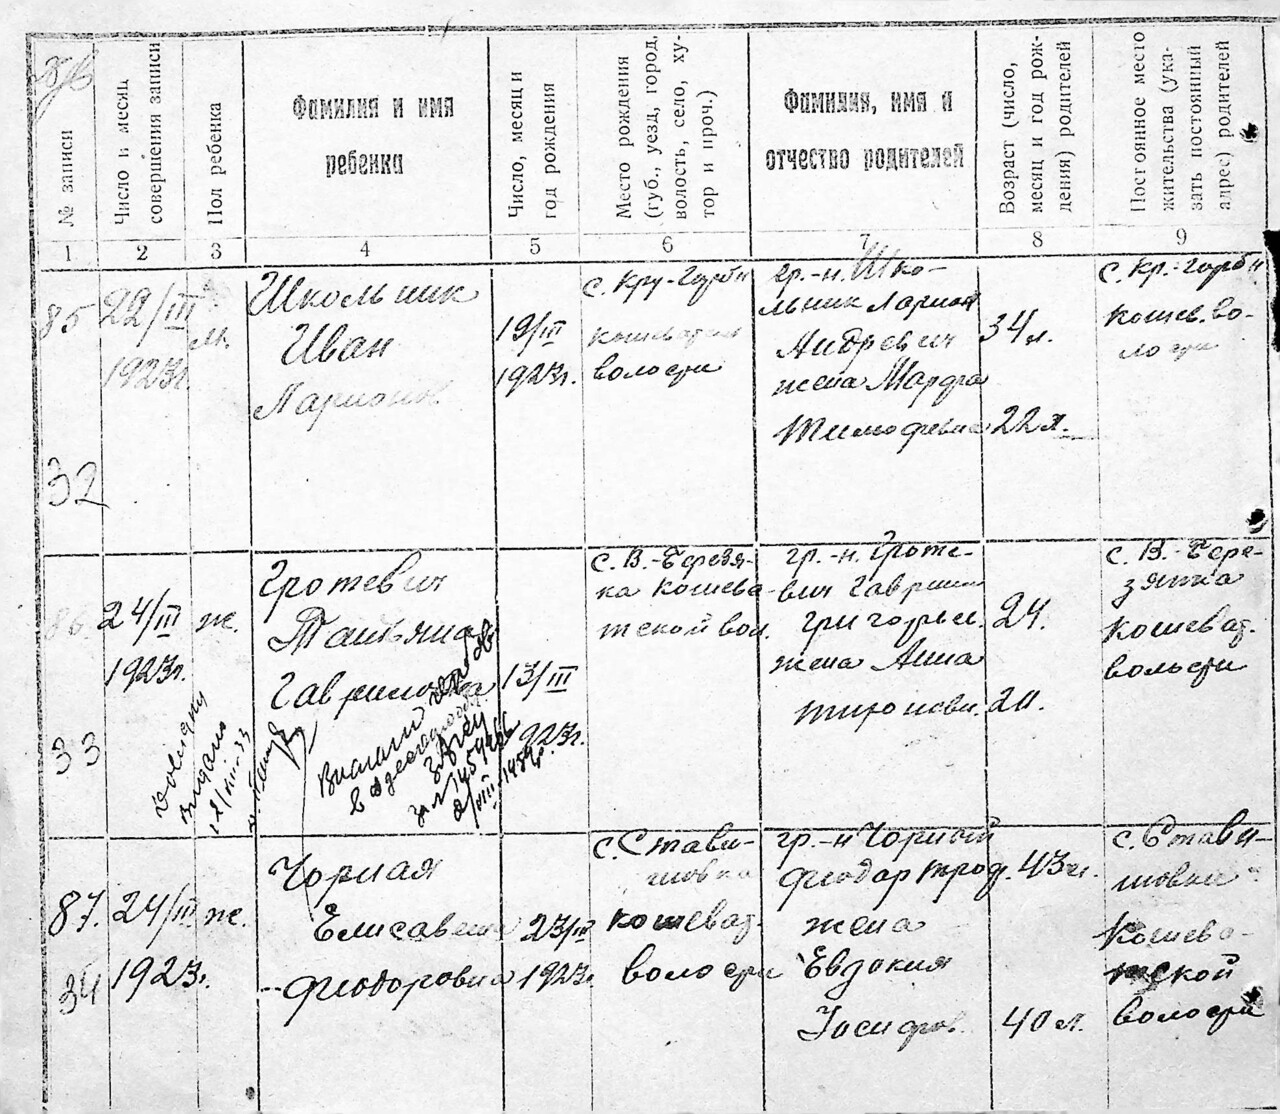 № записи
Число и месяц
совершения записи
Пол ребенка
Фамилия и имя
ребенка
Число, месяц и
год рождения
Место рождения
(губ., уезд, город,
волость, село, ху-
тор и проч.)
Фамилия, имя и
отчество родителей
Возраст (число,
месяц и год рож-
дения) родителей
Постоянное место
жительства (ука-
зать постоянный
адрес) родителей
1 2 3 4 5 6 7 8 9
85
32
22/III
1923г.
м.
Школьник
Иван
Ларионов
19/III
1923г.
с. Кру-Горби
волости
гр.-н. Шко-
льник Ларион
Андревич
жена Марфа
Тимофевна
34 л.
22 л.
с. Кр.-Горби
кошев. во-
лости
86.
33
24/III
1923г.
ж.
Гротевич
Татьяна
Гавриловна
13/III
1923г.
с. В.-Березян-
ка Кошева-
тской вол.
гр.-н. Гроте-
вич Гаврил
Григорьев.
жена Анна
24.
20.
с. В.-Бере-
зянка
Кошеват.
волости
87.
34
24/III
1923г.
ж.
Чорная
Елисавета
Феодоровна
23/III
1923г.
с. Стави-
шовка
кошеват.
волости
гр.-н Чорный
Феодар Трод.
жена
Евдокия
Иосифов.
43 л.
40 л.
с. Стави-
шовки
Кошева-
тской
волости